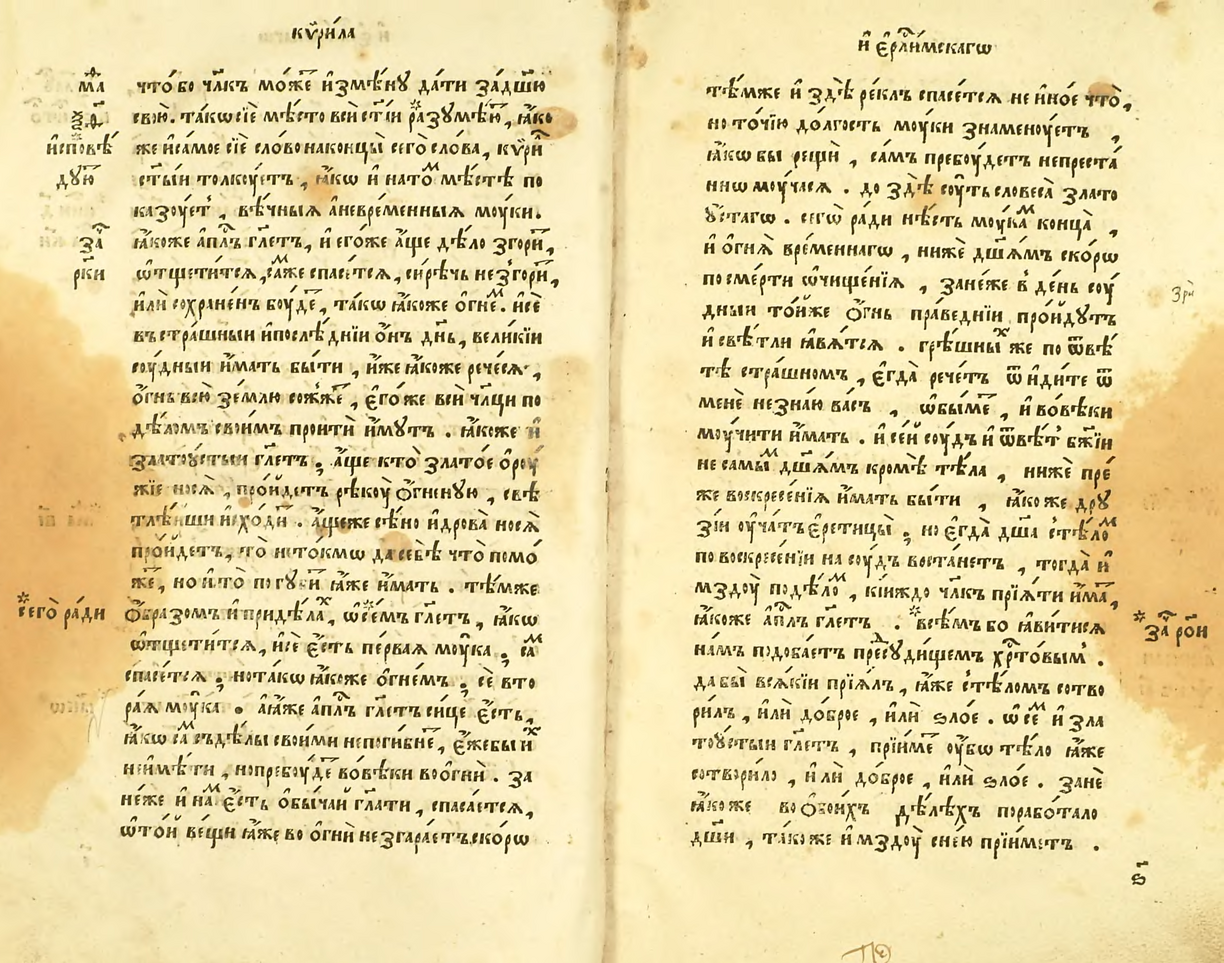 кѷри́ла
что́ бо чл҃къ мо́же и҆змѣ́нꙋ да́ти за́дш҃ю
свою̀. та́кѡ сїѐ мѣ́сто всѝ ст҃і́и разꙋмѣ́ю, ꙗ҆́ко
же и҆само́е сїѐ сло́во наконцы̀ сего̀ сло́ва, кѷ́ри
ст҃ы́и толкꙋ́етъ, ꙗ҆́кѡ и҆ нато́м мѣ́стѣ по
казоꙋ́етъ, вѣ́чныѧ а҆невре́менныѧ моу́ки.
ꙗ҆́коже а҆пⷭ҇лъ гл҃етъ, и҆ его́же а҆́ще дѣ́ло згори́,
ѿтщети́тсѧ, са́же спасе́тсѧ, си́рѣчь не згори́,
и҆лѝ сохране́нъ боу́де, та́кѡ ꙗ҆́коже о҆гне́м. и҆сѐ
въ стра́шныи и҆послѣ́днїи ѻ҆́нъ дн҃ь, вели́кїи
соу́дныи и҆́мать бы́ти, и҆́же ꙗ҆́коже рече́сѧ,
ѻ҆́гнь всю̀ зе́млю сожже́, є҆го́же всѝ чл҃цы по
дѣ́ломъ свои́мъ проитѝ и҆́мꙋтъ. ꙗ҆́коже и҆
златоꙋ́стыи гл҃етъ, а҆́ще кто̀ злато́е ѻ҆роу́
жїе носѧ̀, про́йдетъ рѣкоу̀ ѻ҆́гненꙋю, свѣ
тлѣ́иши и҆схо́ди. а҆́щеже сѣ́но и҆дрова̀ носѧ̀
про́йдетъ, то̀ нетокмѡ да себѣ̀ что̀ помо́
же, но и҆ то̀ погꙋби ꙗ҆́же и҆́мать. тѣ́мже
ѻ҆́бразомъ и҆ придѣ́лах, ѡ҆се́мъ гл҃етъ, ꙗ҆́кѡ
ѿтщети́тсѧ, и҆сѐ є҆́сть пе́рваѧ моу́ка. са́м
спасе́тсѧ, нота́кѡ ꙗ҆́коже ѻ҆гне́мъ. сѐ вто
ра́ѧ моу́ка. а҆ꙗ҆́же а҆пⷭ҇лъ гл҃етъ си́це є҆́сть,
ꙗ҆́кѡ са́м съдѣ́лы свои́ми непоги́бне, є҆́жебы их
неимѣ́ти, нопребоу́де вовѣ́ки воогнѝ. за
не́же и҆ на́м є҆́сть ѻ҆бы́чаи гл҃ати, спаса́етсѧ,
ѿто́и ве́щи ꙗ҆́же во ѻ҆гнѝ не згара́етъ ско́рѡ
исповѣ́
дꙋю
за
рки
сего̀ ра́ди
и҆ є҆рⷭ҇ли́мскагѡ
тѣ́мже и҆ здѣ̀ ре́клъ спасе́тсѧ не и҆но́е что̀,
но то́чїю до́лгость моу́ки знамену́етъ ,
ꙗ҆́кѡ бы рещѝ, са́мъ пребоу́детъ непреста́
ннѡ моу́часѧ. до здѣ̀ соу́ть словеса̀ злато
ꙋ҆́стагѡ. сегѡ̀ ра́ди нѣ́сть моу́кам конца̀ ,
и҆ ѻ҆гнѧ̀ вре́меннагѡ, нижѐ дш҃ѧ́мъ ско́рѡ
по сме́рти ѡ҆чище́нїѧ, зане́же в де́нь соу́
дныи то́йже ѻ҆́гнь пра́веднїи про́йдꙋтъ
и҆ свѣ́тли ꙗ҆вѧ́тсѧ. грѣ́шных же по ѿвѣ́
тѣ стра́шномъ, є҆гда̀ рече́тъ ѿ и҆ди́те ѿ
менѐ незна́ю ва́съ, ѡ҆бы́ме, и҆ вовѣ́ки
моу́чити и҆́мать. и҆ се́и соу́дъ и҆ ѿвѣ́т бж҃їи
не самы́м дш҃ѧ́мъ кромѣ̀ тѣ́ла, нижѐ пре́
же воскресе́нїѧ и҆́мать бы́ти, ꙗ҆́коже дрꙋ
зі́и оу҆ча́тъ є҆ретицы̀, но є҆гда̀ дш҃а с тѣ́лом
по воскресе́нїи на соу́дъ воста́нетъ, тогда̀ и҆
мздоу̀ по дѣ́лом, кі́иждо чл҃къ прїѧ́ти и҆́ма,
ꙗ҆́коже а҆пⷭ҇лъ гл҃етъ. всѣ́мъ бо ꙗ҆ви́тисѧ
на́мъ подоба́етъ пред сꙋди́щемъ хрⷭ҇то́вым.
да бы̀ всѧ́кїи прїѧ́лъ, ꙗ҆́же с тѣ́ломъ сотво
ри́лъ, и҆лѝ до́брое, и҆лѝ ѕло́е. ѡ҆ се́м и҆ зла
тоꙋ́стыи гл҃етъ, прїи́ме оу҆́бѡ тѣ́ло ꙗ҆́же
сотвори́ло, и҆лѝ до́брое, и҆лѝ ѕло́е. занѐ
ꙗ҆́коже во ѻ҆бои́хъ дѣ́лѣхъ порабо́тало
дш҃и, та́коже и҆ мздоу̀ с не́ю прїи́метъ.
за ро́и
ѕ